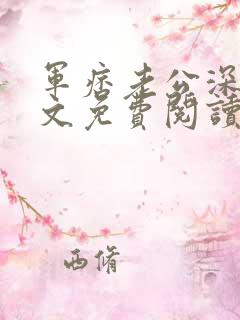 軍痞老公深
文免費閱讀
西脩